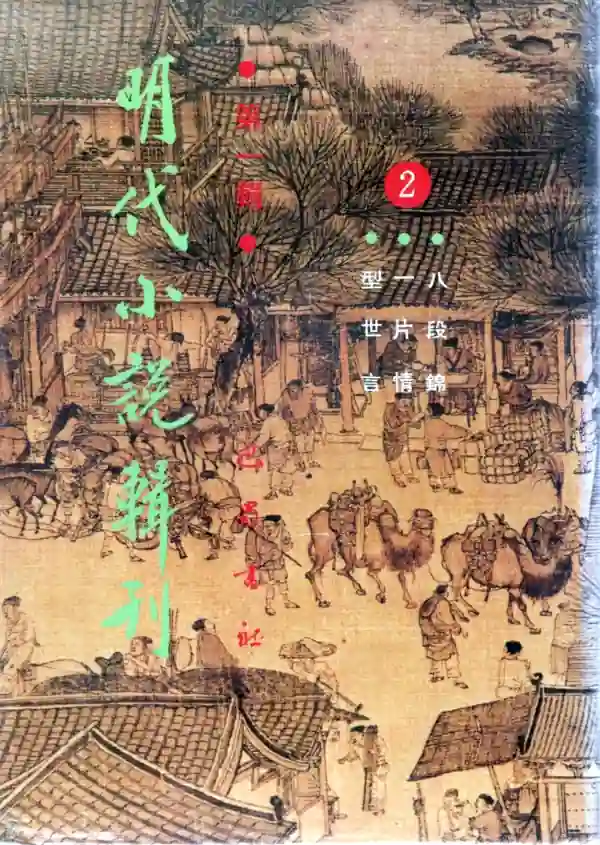 明代小說輯刊
●第一輯●
巴蜀書社
2
八段錦
一片情
型世言